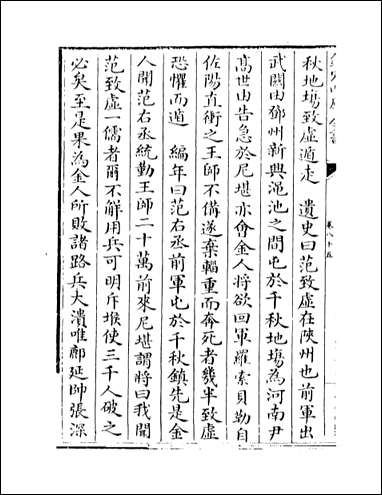 秋地塲致虛遁走　遺史曰范致虛在陜州也前軍出
武關由鄧州新興澠池之間屯於千秋地塲為河南尹
髙世由告急於尼堪亦會金人將欲回軍羅索貝勒自
佐陽直衝之王師不備遂棄輜重而奔死者幾半致虛
恐懼而遁　編年曰范右丞前軍屯於千秋鎮先是金
人聞范右丞統勤王師二十萬前來尼堪謂將曰我聞
范致虛一儒者爾不觧用兵可明斥堠使三千人破之
必矣至是果為金人所敗諸路兵大潰唯鄜延帥張深
卷八十五